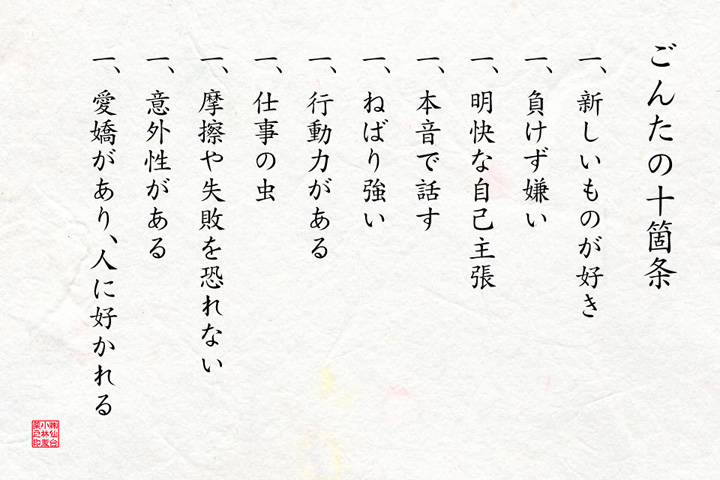 ごんたの十箇条
一、新しいものが好き
一、負けず嫌い
一、明快な自己主張
一、本音で話す
一、ねばり強い
一、行動力がある
一、仕事の虫
一、摩擦や失敗を恐れない
一、意外性がある
一、愛嬌があり、人に好かれる